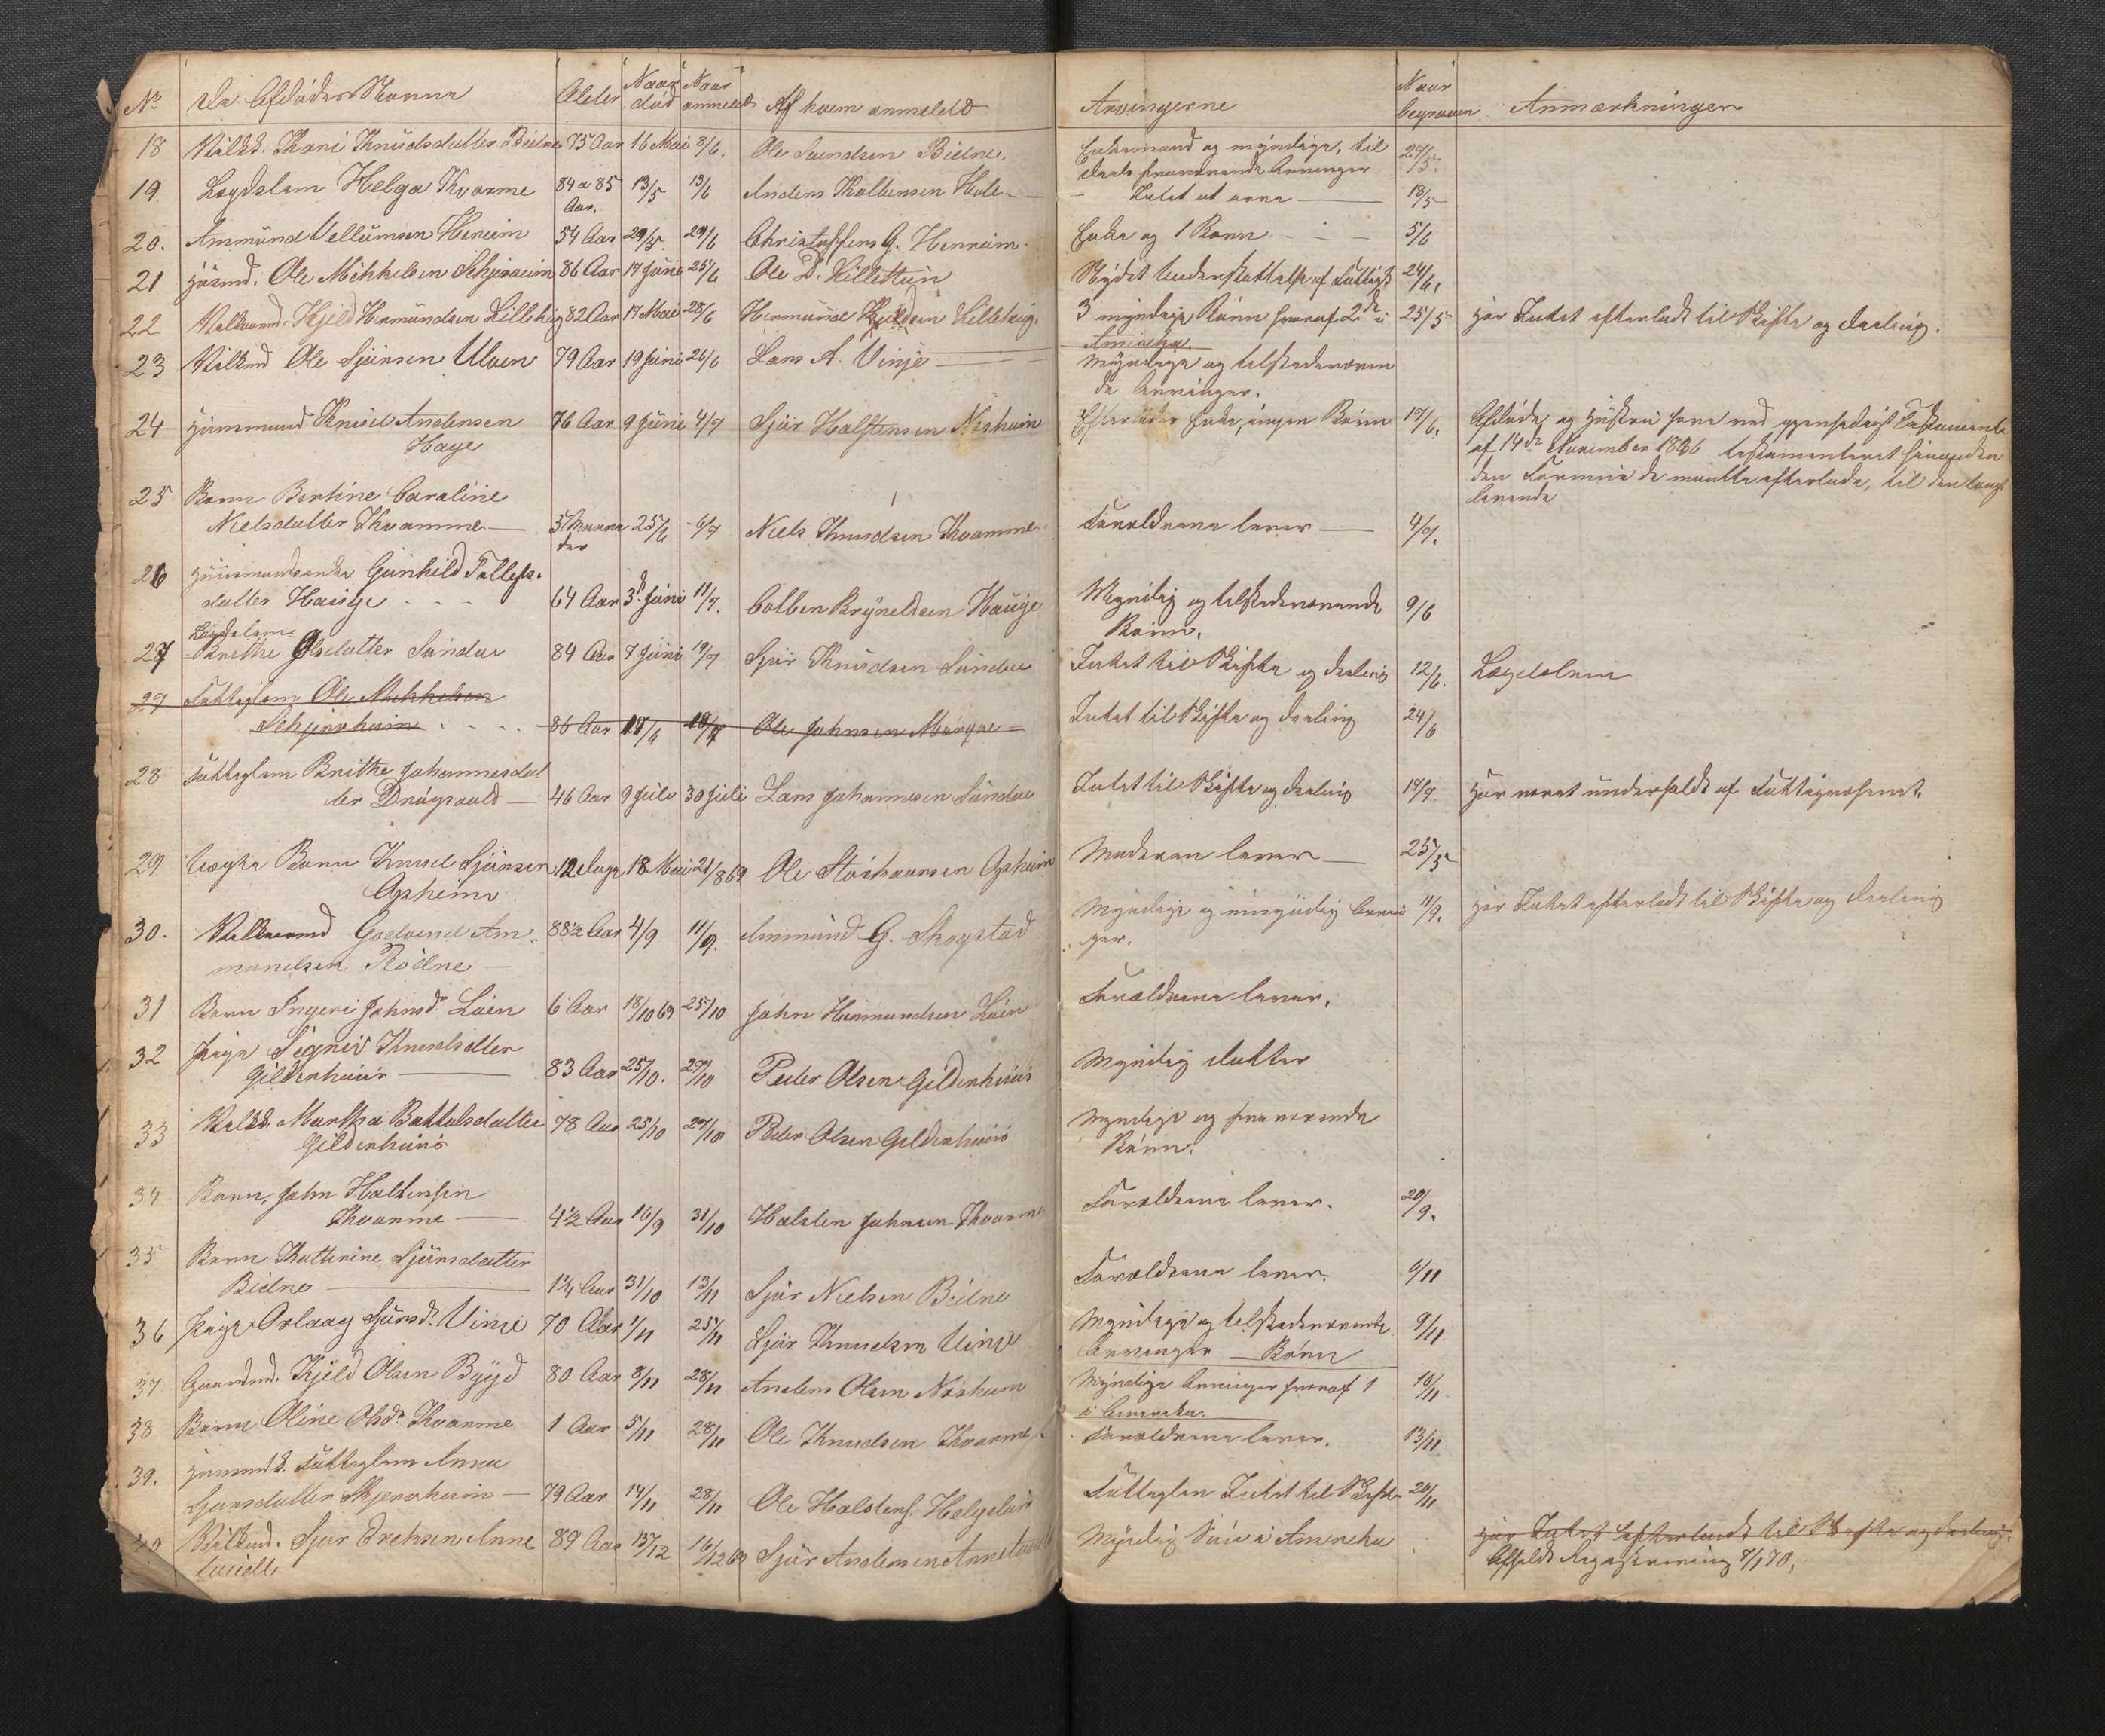 No De Afdødes Navne Alder Naar død Naar anmeldt Af hvem anmeldt Arvingerne Naar begraven Anmærkninger
18 Kaari Knudsdatter Bidne 75 Aar 16 Mai 3/6. Ole Sundsen Bidne. Enkemand og myndige, til
deels fraværende Arvinger 29/5.
19 Lægdslem Helga Kvarme 84 a 85 13/5 13/6 Anders Kolbensen Hole Intet at arve 18/5
Aar.
20. Ammund Vellumsen Henrim 54 Aar 29/5. 29/6 Christoffer G. Henreim Enke og 1 Barn 5/6
21 Huusmd. Ole Mikkelsen Schjervheim 86 Aar 17 Juni 25/6 Ole D. Lillethun Nydt Understøttelse af Fattigk 24/6.
22 Kjeld Hermundsen Lillehoug 82 Aar 17 Mai 28/6 Hermund Kjeldsen Lillehoug. 3 myndige Børn hvoraf 2de i 25/5 har Intet efterladt til Skifte og Deeling.
Amerika.
23 Ole Sjursen Ulven 79 Aar 19 Juni 26/6 Lars A. Vinje Myndige og tilstedeværen
de Arvinger.
24 Huusmand Knud Andersen 76 Aar 9 Juni 4/7 Sjur Halstensen Nesheim Efterlader Enke, ingen Børn 17/6. Afdøde og Hustru have ved gjensidigt Testamente
Hage af 14de November 1836 testamenteret hinanden
den Formue de maatte efterlade, til den længst
levende
25 Barn Bertine Caroline
Nielsdatter Kvamme 5 Maane 25/6 6/7 Niels Knudsen Kvamme Forældrene lever 4/7.
der
26 Huusmandsenke Gunhild Tollefs-
datter Hauge 64 Aar 3d Juni 11/7. Colben Bryneldsen Hauge Myndig og tilstedeværende 9/6
Børn.
Lægdslem
27 Brithe Olsdatter Sundve 84 Aar 7 Juni 19/7 Sjur Knudsen Sundve Intet til Skifte og Deeling 12/6. Lægdslem
27 Fattiglem Ole Mikkelsen
Schjervheim 86 Aar 17/6 18/7 Ole Johnsen Intet til Skifte og Deeling 24/6
28 Fattiglem Brithe Johannesdat
ter Drøgsvold 46 Aar 9 Juli 30 Juli Lars Johannesen Sundve Intet til Skifte og Deeling 17/7 Har været underholdt af Fattigvæsenet.
29 Uægte Barn Knud Sjursen 12 Dage 18 Mai 21/8 69 Ole Opheim Moderen lever 25/5
Opheim
30. Godvend Am- 88½ Aar 4/9 11/9. Ammund G. Skogstad Myndige og umyndig Arvin 11/9. har Intet efterladt til Skifte og Deeling
mundsen Rødne ger.
31 Barn Ingeri Johnsd. Løen 6 Aar 18/10 69 25/10 John Hermundsen Løen Forældrene lever.
32 Pige Signi Knudsdatter
Gildenhuus 83 Aar 25/10. 29/10 Peder Olsen Gildenhuus Myndig Datter
33 Martha Battulsdatter 78 Aar 25/10 29/10 Peder Olsen Gildenhuus Myndige og fraværende
Gildenhuus Børn.
34 Barn, John Halstensen
Kvamme 4½ Aar 16/9 31/10 Halsten Johnsen Kvamme Forældrene lever. 20/9.
35 Barn Katherine Sjursdatter
Bidne 1¼ Aar 31/10 13/11 Sjur Nielsen Bidne Forældrene lever. 6/11
36 Pige Orlaug Sjursd. Vinie 70 Aar 1/11 25/11 Sjur Knudsen Vinie Myndige og tilstedeværende 9/11
Arvinger Børn
37 Gaardmd. Kjeld Olsen Bygd 80 Aar 8/11 28/11 Anders Olsen Nesheim Myndige Arvinger hvoraf 1 16/11
i Amerika.
38 Barn Oline Olsdr Kvarme 1 Aar 5/11 28/11 Ole Knudsen Kvarme Forældrene lever. 13/11
39. Huusmd. Fattiglem Anna
Sjursdatter Skjervheim 79 Aar 14/11 28/11 Ole Halstens. Helgeland Fattiglem Intet til Skifte 20/11
Sjur Drehsen Anne 89 Aar 13/12 16/12 69 Sjur Andersen Myndig Søn i Amerika har Intet efterladt til Skifte og Deeling.
tveidt Afholdt Registrering 7/1 70.